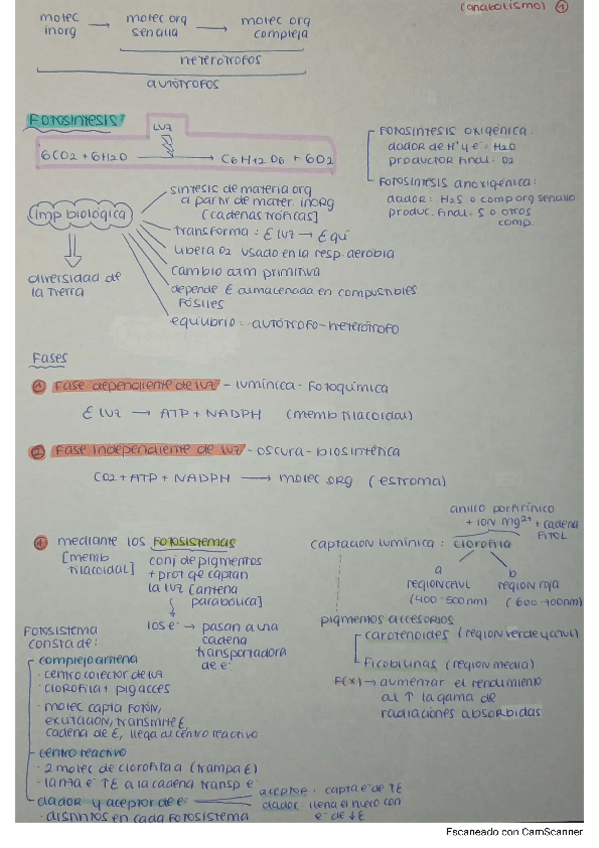 (anabolismo) 1
molec inorg → molec org sencilla → molec org compleja
heterótrofos
autótrofos
Fotosíntesis:
LUZ
6CO2 + 6H2O → C6H12O6 + 6O2
Fotosíntesis oxigénica:
dador de H+ y e-: H2O
productor final: O2
Fotosíntesis anoxigénica:
dador: H2S o comp org sencillo
produc. final: S o otros
comp.
imp biológica
diversidad de
la Tierra
síntesis de materia org
a partir de mater. inorg
[cadenas tróficas]
transforma: E luz → E quí
libera O2 usado en la resp. aerobia
cambio atm primitiva
depende E almacenada en combustibles
fósiles
equilibrio: autótrofo-heterótrofo
Fases
1 Fase dependiente de luz - lumínica - fotoquímica
E luz → ATP + NADPH (memb tilacoidal)
2 Fase independiente de luz - oscura - biosintética
CO2 + ATP + NADPH → molec org (estroma)
1 mediante los fotosistemas
[memb
tilacoidal]
conj de pigmentos
+ prot qe captan
la luz [antena
parabólica]
los e- → pasan a una
cadena
transportadora
de e-
anillo porfirínico
+ ion Mg2+ + cadena
fitol
captacion lumínica: clorofila
a
region azul
(400-500nm)
b
region roja
(600-700nm)
pigmentos accesorios
carotenoides (region verde y azul)
ficobilinas (region media)
F(x) → aumentar el rendimiento
al ↑ la gama de
radiaciones absorbidas
Fotosistema
consta de:
complejo antena
· centro colector de luz
· clorofila + pig acces
· molec capta fotón,
excitación, transmite E
cadena de E, llega al centro reactivo
centro reactivo
· 2 molec de clorofila a (trampa E)
· lanza e- ↑E a la cadena transp e-
dador y aceptor de e-
· distintos en cada fotosistema
aceptor: capta e- de ↑E
dador: llena el hueco con
e- de ↓E
Escaneado con CamScanner